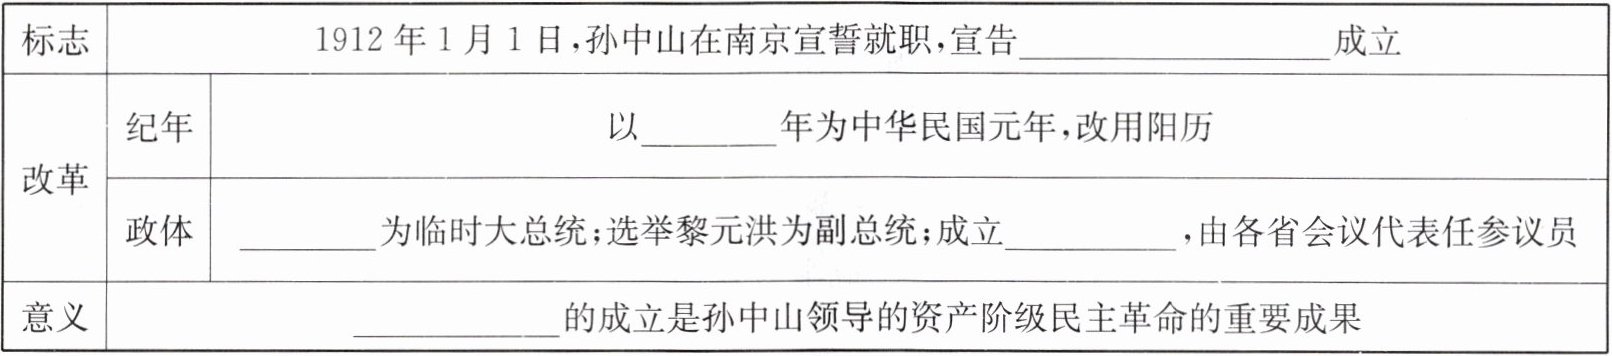 标志 1912年1月1日,孙中山在南京宣誓就职,宣告____________成立
改革 纪年 以______年为中华民国元年,改用阳历
政体 ______为临时大总统;选举黎元洪为副总统;成立________,由各省会议代表任参议员
意义 ________的成立是孙中山领导的资产阶级民主革命的重要成果